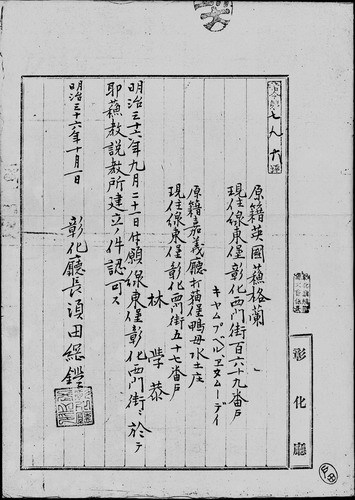 七八六
原籍英國蘇格蘭
現住線東堡彰化西門街百六十九番戶
キャムプベルヱヌムーデイ
原籍嘉義廳打猫堡鴨母水土庄
現住線東堡彰化西門街五十七番戶
林 學恭
明治三十六年九月二十一日付願線東堡彰化西門街ニ於テ
耶蘇教説教所建立ノ件認可ス
明治三十六年十月一日
彰化廳長須田綱鑑
彰化廳